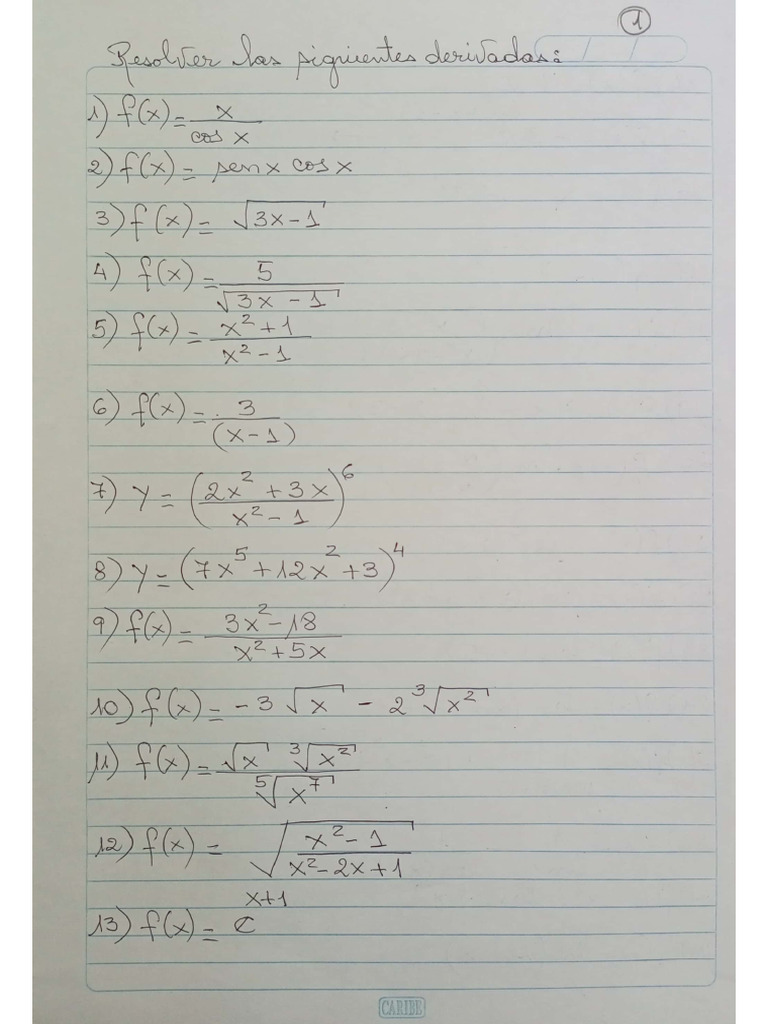 1
Resolver las siguientes derivadas:
1) f(x) = x / cos x
2) f(x) = senx cosx
3) f(x) = √(3x-1)
4) f(x) = 5 / √(3x-1)
5) f(x) = (x²+1) / (x²-1)
6) f(x) = 3 / (x-1)
7) y = ((2x²+3x) / (x²-1))⁶
8) y = (7x⁵+12x²+3)⁴
9) f(x) = (3x²-18) / (x²+5x)
10) f(x) = -3 √x - 2 ³√x²
11) f(x) = √x ³√x² / ⁵√x⁷
12) f(x) = √((x²-1) / (x²-2x+1))
13) f(x) = e^(x+1)
CARIBE